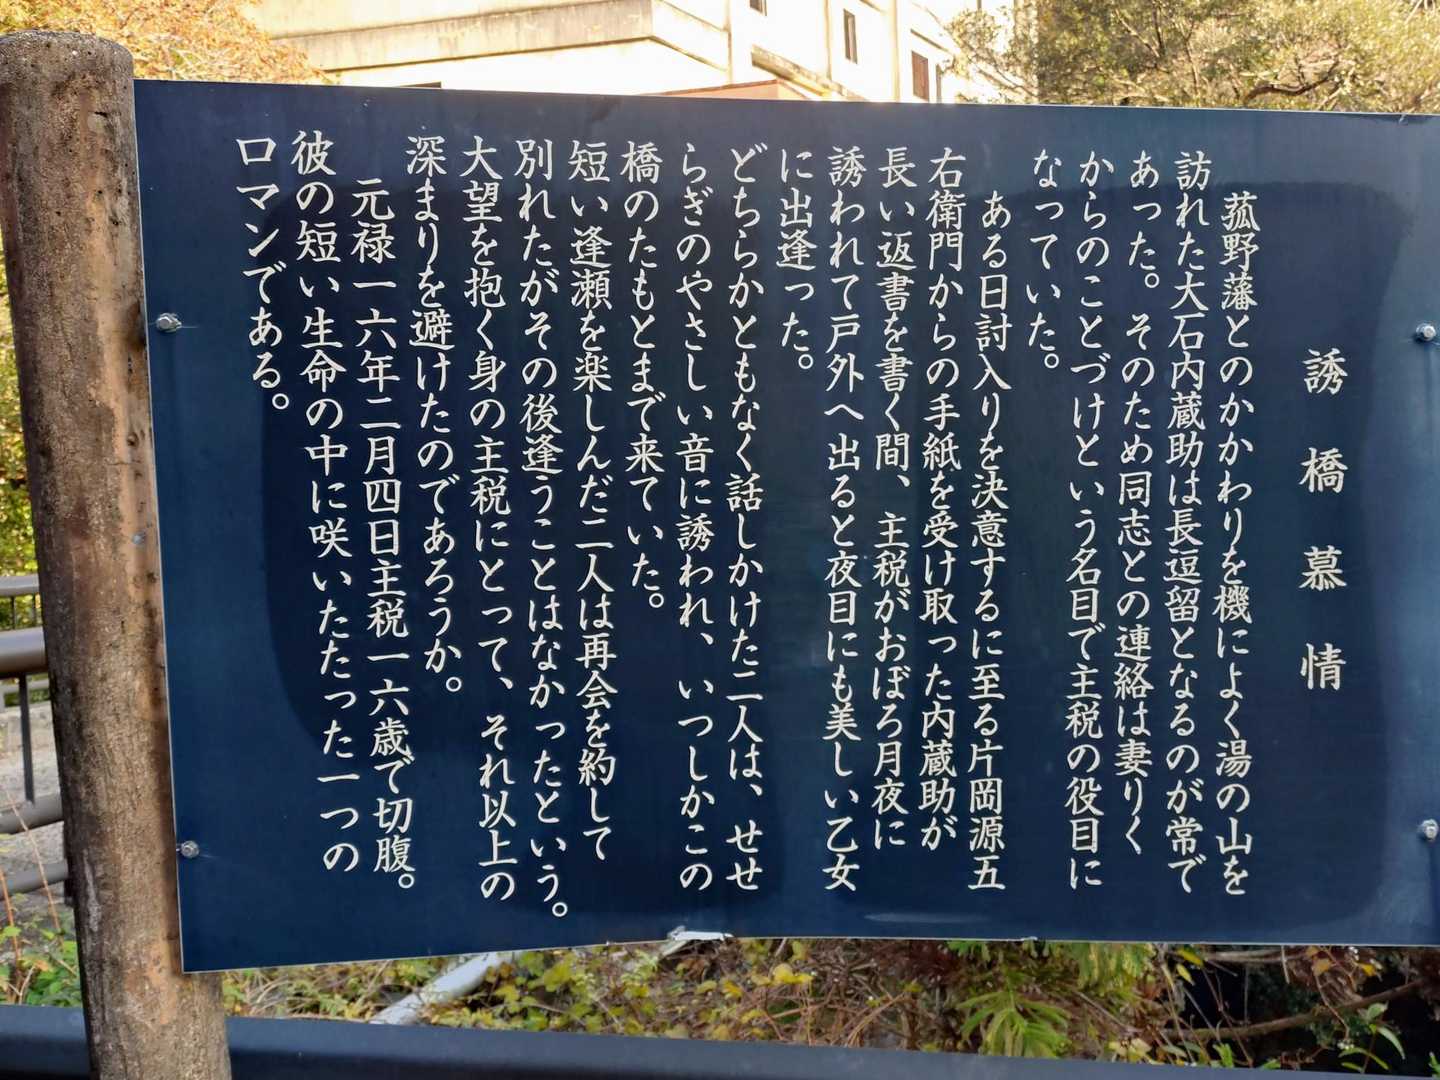 誘橋慕情
菰野藩とのかかわりを機によく湯の山を
訪れた大石内蔵助は長逗留となるのが常で
あった。そのため同志との連絡は妻りく
からのことづけという名目で主税の役目に
なっていた。
ある日討入りを決意するに至る片岡源五
右衛門からの手紙を受け取った内蔵助が
長い返書を書く間、主税がおぼろ月夜に
誘われて戸外へ出ると夜目にも美しい乙女
に出逢った。
どちらかともなく話しかけた二人は、せせ
らぎのやさしい音に誘われ、いつしかこの
橋のたもとまで来ていた。
短い逢瀬を楽しんだ二人は再会を約して
別れたがその後逢うことはなかったという。
大望を抱く身の主税にとって、それ以上の
深まりを避けたのであろうか。
元禄一六年二月四日主税一六歳で切腹。
彼の短い生命の中に咲いたたった一つの
ロマンである。